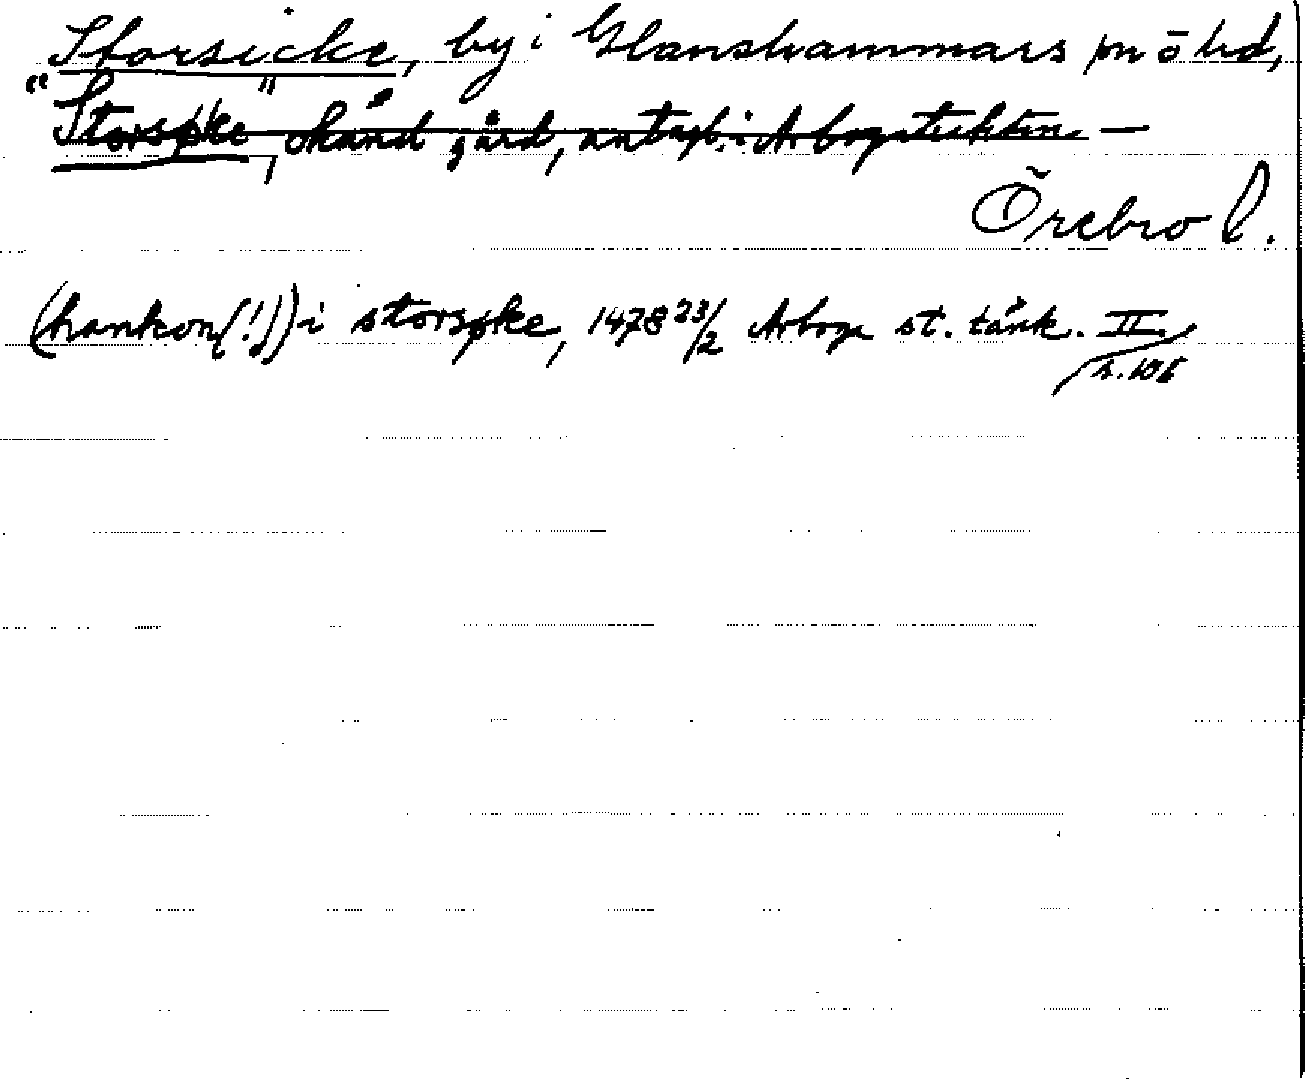 Storsicke, by i Glanshammars sn o hd,
"Storsøke", okänd gård, antagl. i Arbogatrakten. —
Örebro l.
(hankon(!)) i storsøke, 1478 23/2 Arboga st. tänk. II
s. 106